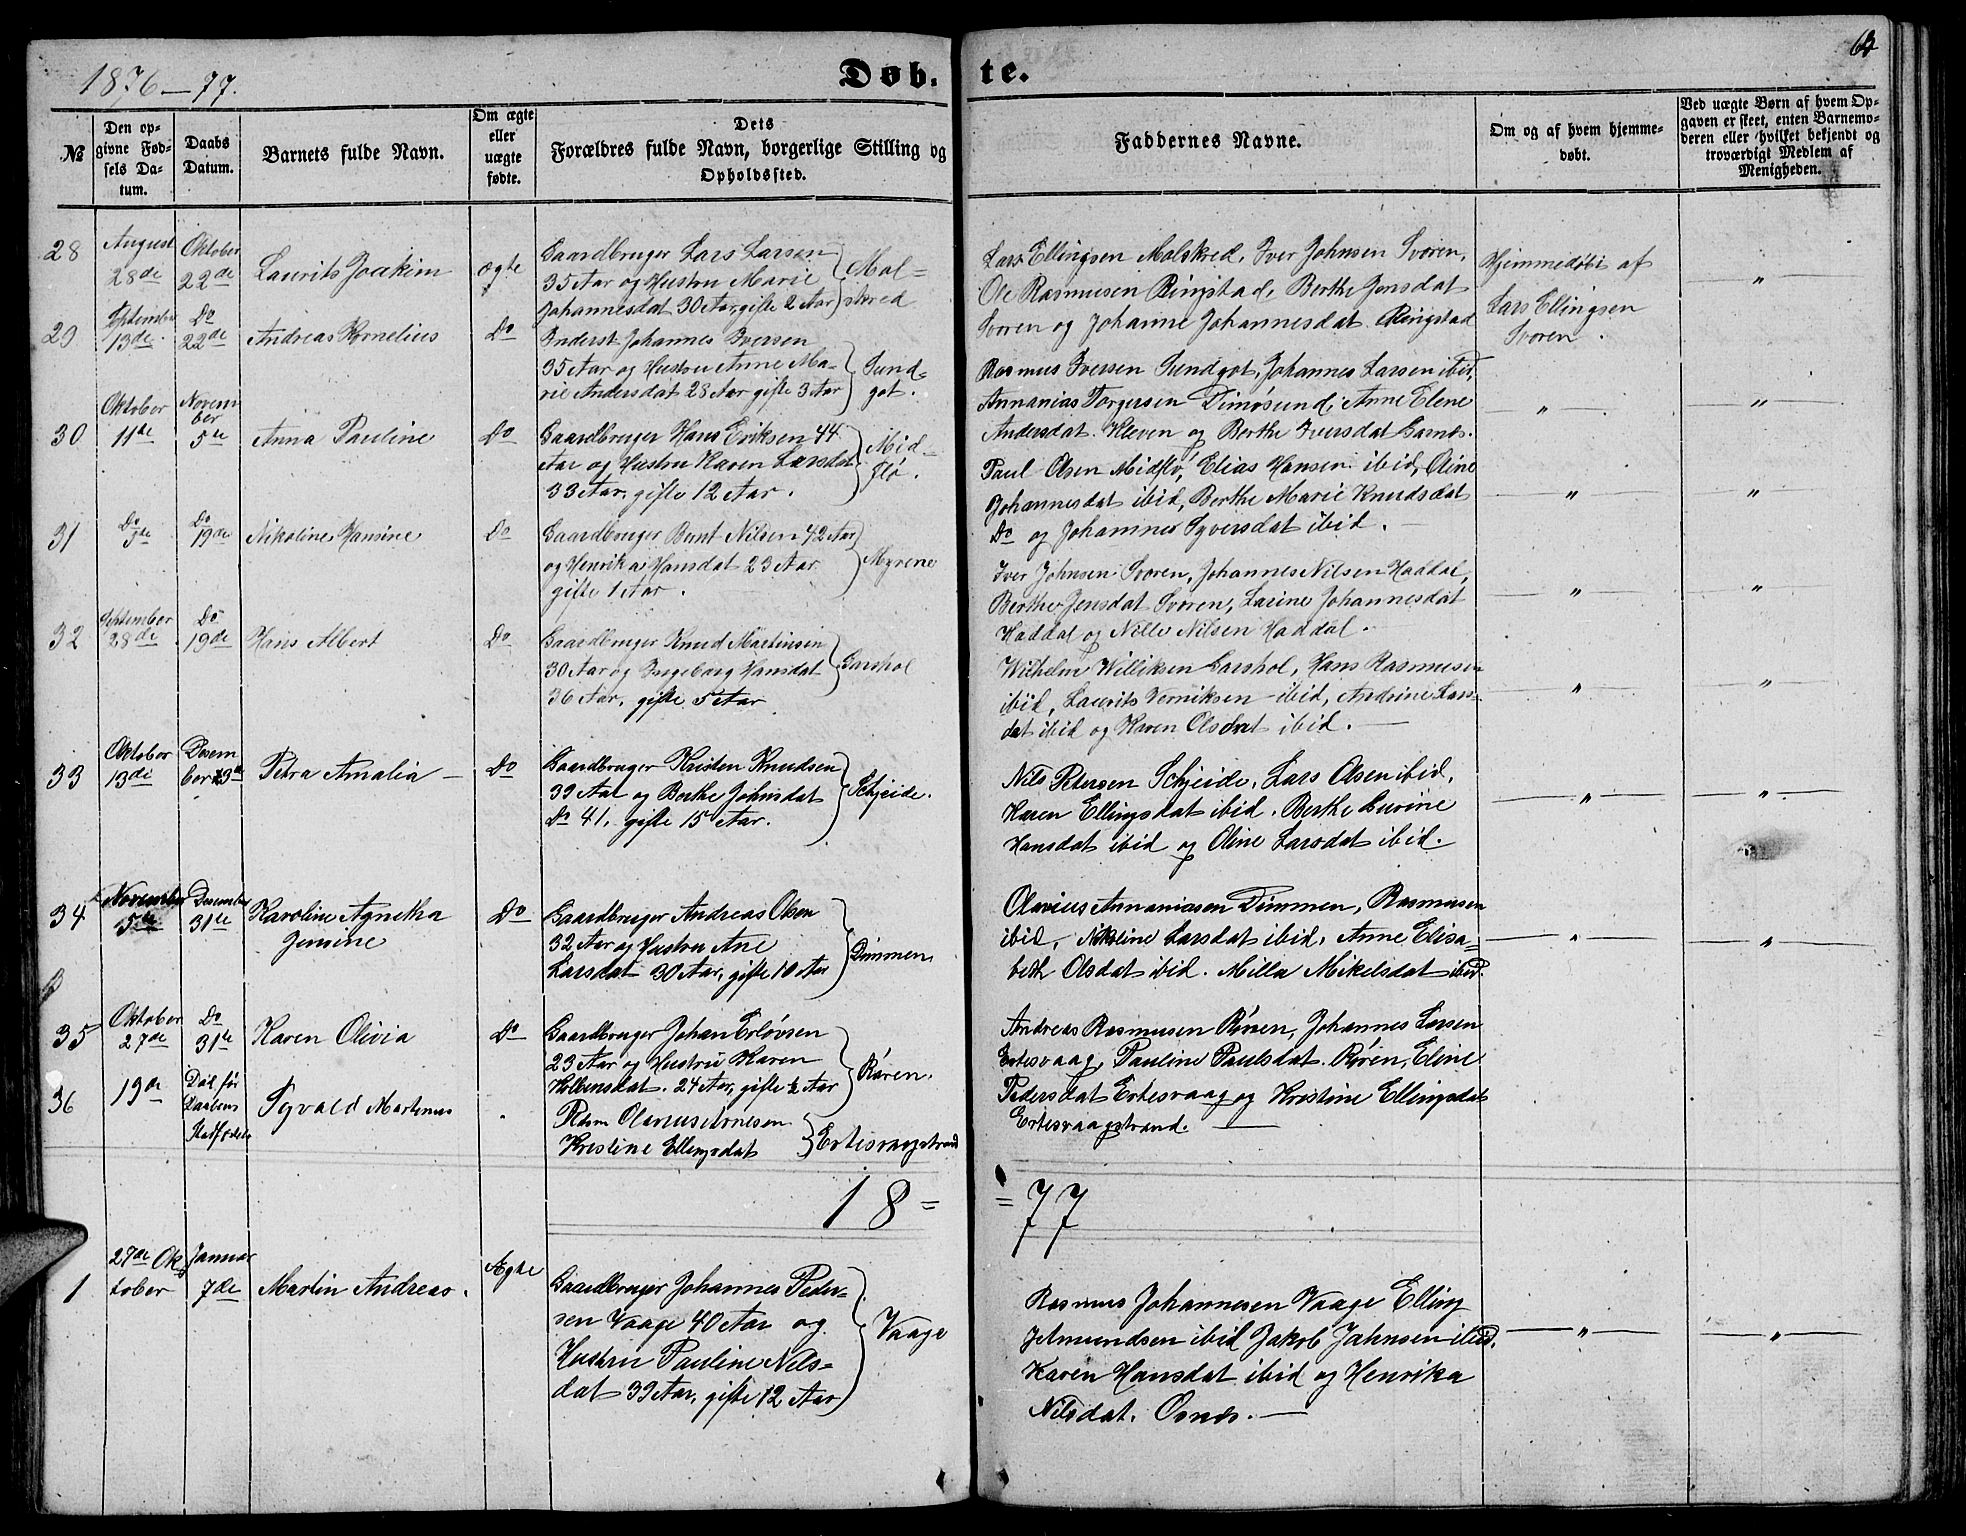 1876–77.
Døb-
te.
№
Den op-
givne Fød-
sels Da-
tum.
Daabs
Datum.
Barnets fulde Navn.
Om ægte
eller
uægte
fødte.
Dets
Forældres fulde Navn, borgerlige Stilling og
Opholdssted.
Faddernes Navne.
Om og af hvem hjemme-
døbt.
Ved uægte Børn af hvem Op-
gaven er skeet, enten Barnemo-
deren eller hvilket bekjendt og
troværdigt Medlem af
Menigheden.
28
August
28de
Oktober
22de
Laurits Joakim
ægte
Gaardbruger Lars Larsen
35 Aar og Hustru Marie
Johannesdat 30 Aar, gifte 2 Aar
Mol=
skred
Lars Ellingsen Molskred, Iver Johnsen Svoren,
Ole Rasmusen Ringstad, Berthe Jensdat
Svoren og Johanne Johannesdat Ringstad
Hjemmedøbt af
Lars Ellingsen
Svoren.
"
29
September
13de
Do
22de
Andreas Kornelius
Do
Inderst Johannes Iversen
35 Aar og Hustru Anne Ma=
rie Andersdat 28 Aar gifte 3 Aar
Sund=
got.
Rasmus Iversen Sundgot, Johannes Larsen ibid,
Annanias Torgersen Dimøsund, Anne Elene
Andersdat Kleven og Berthe Iversdat Garnes.
"
"
30
Oktober
11te
Novem
ber
5te
Anna Pauline
Do
Gaardbruger Hans Eriksen 44
Aar og Hustru Karen Larsdat
33 Aar, gifte 12 Aar.
Mid=
flø.
Paul Olsen Midflø, Elias Hansen ibid, Oline
Johannesdat ibid, Berthe Marie Knudsdat
Do og Johannes Syversdat ibid.
"
"
31
Do
3de
Do
19de
Nikoline Hansine
Do
Gaardbruger Bernt Nilsen 42 Aar
og Henrika Hansdat 23 Aar
gifte 1 Aar.
Myrene
Iver Johnsen Svoren, Johannes Nilsen Haddal,
Berthe Jensdat Svoren, Larine Johannesdat
Haddal og Nille Nilsen Haddal.
"
"
32
September
28de
Do
19de
Hans Albert
Do
Gaardbruger Knud Martinsen
30 Aar og Ingeborg Hansdat
36 Aar, gifte 5 Aar
Garshol
Wilhelm Williksen Garshol, Hans Rasmusen
ibid, Laurits Jerniksen ibid, Andrine Lars-
dat ibid og Karen Olsdat ibid.
"
"
33
Oktober
13de
Desem
ber 3de
Petra Amalia
Do
Gaardbruger Kristen Knudsen
39 Aar og Berthe Johnsdat
Do 41, gifte 15 Aar.
Schjeide.
Nils Petersen Schjeide, Lars Olsen ibid,
Karen Ellingsdat ibid. Berthe Gurine
Hansdat ibid og Oline Larsdat ibid.
"
"
34
November
5te
Desember
31te
Karoline Agnetha
Jensine
Do
Gaardbruger Andreas Olsen
32 Aar og Hustru Ane
Larsdat 30 Aar, gifte 10 Aar
Dimmen
Olavius Annaniasen Dimmen, Rasmusen
ibid, Nikoline Larsdat ibid. Anne Elisa=
beth Olsdat ibid. Milla Mikelsdat ibid.
"
"
35
Oktober
27de
Do
31te
Karen Olivia
Do
Gaardbruger Johan Erløvsen
23 Aar og Hustru Karen
24 Aar, gifte ½ Aar
Røren.
Andreas Rasmusen Røren, Johannes Larsen
Ertesvaag, Pauline Paulsdat Røren, Eline
Pedersdat Ertesvaag og Kristine Ellingsdat
Ertesvaagstrand.
36
19de
Død før
Daabens
Stadfødelse
Syvald Martinus
Rasm Olavius Arnesen
Kristine Ellingsdat
Ertesvaagstrand
18=
=77
1
27de Ok
tober
Januar
7de
Martin Andreas.
Ægte
Gaardbruger Johannes Peder=
sen Vaage 40 Aar og
Hustru Pauline Nils=
dat 39 Aar, gifte 12 Aar
Vaage
Rasmus Johannesen Vaage Elling
Jetmundsen ibid Jakob Jahnsen ibid.
Karen Hansdat ibid og Henrika
Nilsdat. Osnes.
"
"